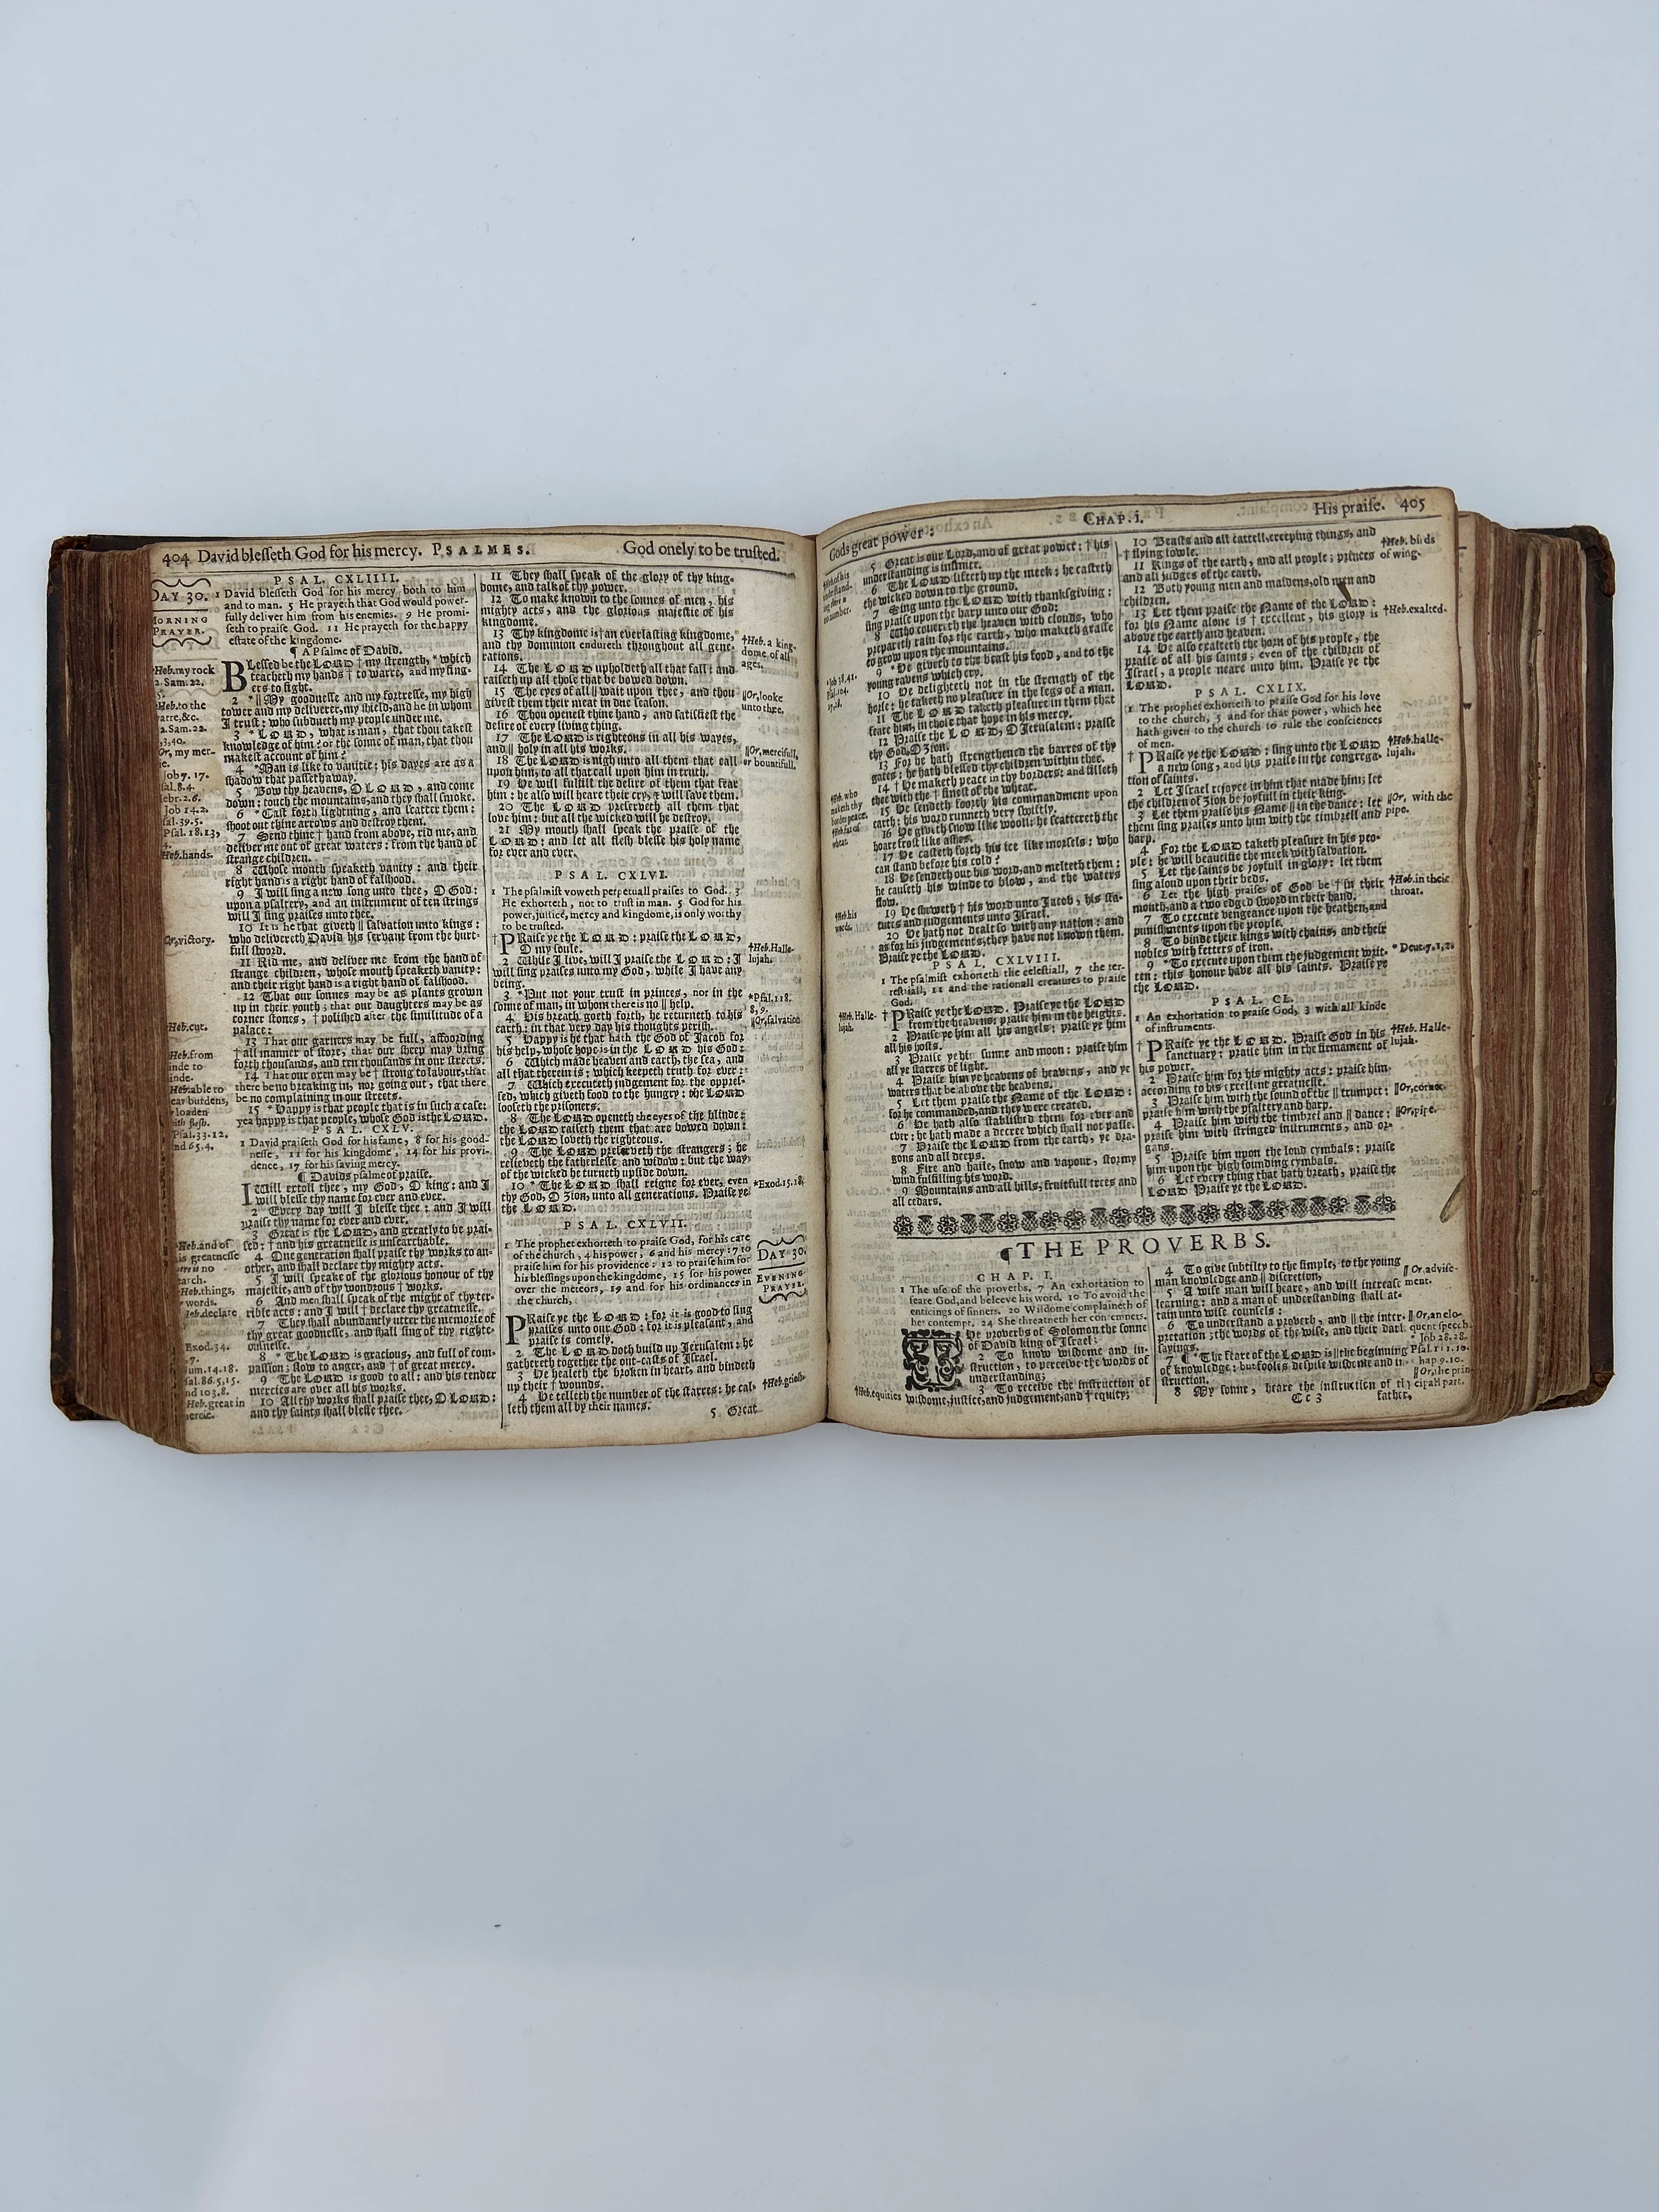 404 David blesseth God for his mercy. PSALMES. God onely to be trusted.
DAY 30.
MORNING
PRAYER.
PSAL. CXLIIII.
1 David blesseth God for his mercy both to him
and to man. 5 He prayeth that God would power-
fully deliver him from his enemies. 9 He promi-
seth to praise God. 11 He prayeth for the happy
estate of the kingdome.
¶ A Psalme of David.
BLessed be the LORD † my strength, *which
teacheth my hands † to warre, and my fing-
ers to fight.
2 *|| My goodnesse and my fortresse, my high
tower and my deliverer, my shield, and he in whom
I trust: who subdueth my people under me.
3 * LORD, what is man, that thou takest
knowledge of him? or the sonne of man, that thou
makest account of him?
4 *Man is like to vanitie: his dayes are as a
shadow that passeth away.
5 Bow thy heavens, O LORD, and come
down: touch the mountains, and they shall smoke.
6 *Cast forth lightning, and scatter them:
shoot out thine arrows and destroy them.
7 Send thine † hand from above, rid me, and
deliver me out of great waters: from the hand of
strange children.
8 Whose mouth speaketh vanity: and their
right hand is a right hand of falshood.
9 I will sing a new song unto thee, O God:
upon a psaltery, and an instrument of ten strings
will I sing praises unto thee.
10 It is he that giveth || salvation unto kings:
who delivereth David his servant from the hurt-
full sword.
11 Rid me, and deliver me from the hand of
strange children, whose mouth speaketh vanity:
and their right hand is a right hand of falshood.
12 That our sonnes may be as plants grown
up in their youth; that our daughters may be as
corner stones, † polished after the similitude of a
palace:
13 That our garners may be full, affoording
† all manner of store, that our sheep may bring
forth thousands, and ten thousands in our streets.
14 That our oxen may be † strong to labour, that
there be no breaking in, nor going out, that there
be no complaining in our streets.
15 * Happy is that people that is in such a case:
yea happy is that people, whose God is the LORD.
PSAL. CXLV.
1 David praiseth God for his fame, 8 for his good-
nesse, 11 for his kingdome, 14 for his provi-
dence, 17 for his saving mercy.
¶ Davids psalme of praise.
I Will extoll thee, my God, O king: and I
will blesse thy name for ever and ever.
2 Every day will I blesse thee: and I will
praise thy name for ever and ever.
3 Great is the LORD, and greatly to be prai-
sed: † and his greatnesse is unsearchable.
4 One generation shall praise thy works to an-
other, and shall declare thy mighty acts.
5 I will speake of the glorious honour of thy
majestie, and of thy wondrous † works.
6 And men shall speak of the might of thy ter-
rible acts: and I will † declare thy greatnesse.
7 They shall abundantly utter the memorie of
thy great goodnesse, and shall sing of thy righte-
ousnesse.
8 * The LORD is gracious, and full of com-
passion; slow to anger, and † of great mercy.
9 The LORD is good to all: and his tender
mercies are over all his works.
10 All thy works shall praise thee, O LORD:
and thy saints shall blesse thee.
Heb. my rock
2. Sam. 22.
Heb. to the
2. Sam. 22.
Or, my mer-
Job 7. 17.
Job 14. 2.
Psal. 18. 13,
Heb. hands.
Or, victory.
Heb. cut.
Heb. from
Heb. able to
Psal. 33. 12.
Heb. and of
Heb. things,
Heb. declare
Exod. 34.
Heb. great in
11 They shall speak of the glory of thy king-
dome, and talk of thy power.
12 To make known to the sonnes of men, his
mighty acts, and the glorious majestie of his
kingdome.
13 Thy kingdome is † an everlasting kingdome,
and thy dominion endureth throughout all gene-
rations.
14 The LORD upholdeth all that fall: and
raiseth up all those that be bowed down.
15 The eyes of all || wait upon thee, and thou
givest them their meat in due season.
16 Thou openest thine hand, and satisfiest the
desire of every living thing.
17 The LORD is righteous in all his wayes,
and || holy in all his works.
18 The LORD is nigh unto all them that call
upon him, to all that call upon him in truth.
19 He will fulfill the desire of them that fear
him: he also will heare their cry, & will save them.
20 The LORD preserveth all them that
love him: but all the wicked will he destroy.
21 My mouth shall speak the praise of the
LORD: and let all flesh blesse his holy name
for ever and ever.
PSAL. CXLVI.
1 The psalmist voweth perpetuall praises to God. 3
He exhorteth, not to trust in man. 5 God for his
power, justice, mercy and kingdome, is only worthy
to be trusted.
† PRaise ye the LORD: praise the LORD,
O my soule.
2 While I live, will I praise the LORD: I
will sing praises unto my God, while I have any
being.
3 *Put not your trust in princes, nor in the
sonne of man, in whom there is no || help.
4 His breath goeth forth, he returneth to his
earth: in that very day his thoughts perish.
5 Happy is he that hath the God of Jacob for
his help, whose hope is in the LORD his God:
6 Which made heaven and earth, the sea, and
all that therein is: which keepeth truth for ever:
7 Which executeth judgement for the oppres-
sed, which giveth food to the hungry: the LORD
looseth the prisoners.
8 The LORD openeth the eyes of the blinde:
the LORD raiseth them that are bowed down:
the LORD loveth the righteous.
9 The LORD preserveth the strangers; he
relieveth the fatherlesse and widow: but the way
of the wicked he turneth upside down.
10 * The LORD shall reigne for ever, even
thy God, O Zion, unto all generations. Praise ye
the LORD.
PSAL. CXLVII.
1 The prophet exhorteth to praise God, for his care
of the church, 4 his power, 6 and his mercy: 7 to
praise him for his providence: 12 to praise him for
his blessings upon the kingdome, 15 for his power
over the meteors, 19 and for his ordinances in
the church,
PRaise ye the LORD: for it is good to sing
praises unto our God: for it is pleasant, and
praise is comely.
2 The LORD doth build up Jerusalem: he
gathereth together the out-casts of Israel.
3 He healeth the broken in heart, and bindeth
up their † wounds.
4 He telleth the number of the starres: he cal-
leth them all by their names.
5 Great
† Heb. a king-
dome of all
ages.
|| Or, looke
unto thee.
|| Or, mercifull,
or bountifull.
† Heb. Halle-
lujah.
*Psal. 118.
8, 9.
|| Or, salvation
*Exod. 15. 18.
DAY 30.
EVENING
PRAYER.
† Heb. griefs.
Gods great power: CHAP. i. His praise. 405
5 Great is our Lord, and of great power: † his
understanding is infinite.
6 The LORD lifteth up the meek: he casteth
the wicked down to the ground.
7 Sing unto the LORD with thanksgiving:
sing praise upon the harp unto our God:
8 Who covereth the heaven with clouds, who
prepareth rain for the earth, who maketh grasse
to grow upon the mountains.
9 * He giveth to the beast his food, and to the
young ravens which cry.
10 He delighteth not in the strength of the
horse: he taketh no pleasure in the legs of a man.
11 The LORD taketh pleasure in them that
feare him, in those that hope in his mercy.
12 Praise the LORD, O Jerusalem: praise
thy God, O Zion.
13 For he hath strengthened the barres of thy
gates: he hath blessed thy children within thee.
14 † He maketh peace in thy borders: and filleth
thee with the † finest of the wheat.
15 He sendeth foorth his commandment upon
earth: his word runneth very swiftly.
16 He giveth snow like wooll: he scattereth the
hoare frost like ashes.
17 He casteth forth his ice like morsels: who
can stand before his cold?
18 He sendeth out his word, and melteth them:
he causeth his winde to blow, and the waters
flow.
19 He sheweth † his word unto Jacob, his sta-
tutes and judgements unto Israel.
20 He hath not dealt so with any nation: and
as for his judgements, they have not known them.
Praise ye the LORD.
PSAL. CXLVIII.
1 The psalmist exhorteth the celestiall, 7 the ter-
restiall, 11 and the rationall creatures to praise
God.
† PRaise ye the LORD. Praise ye the LORD
from the heavens: praise him in the heights.
2 Praise ye him all his angels: praise ye him
all his hosts.
3 Praise ye him sunne and moon: praise him
all ye starres of light.
4 Praise him ye heavens of heavens, and ye
waters that be above the heavens.
5 Let them praise the Name of the LORD:
for he commanded, and they were created.
6 He hath also stablished them for ever and
ever: he hath made a decree which shall not passe.
7 Praise the LORD from the earth, ye dra-
gons and all deeps.
8 Fire and haile, snow and vapour, stormy
wind fulfilling his word.
9 Mountains and all hills, fruitfull trees and
all cedars.
† Heb. who
maketh thy
† Heb. his
† Heb. Halle-
lujah.
10 Beasts and all cattell, creeping things, and
† flying fowle.
11 Kings of the earth, and all people; princes
and all judges of the earth.
12 Both young men and maidens, old men and
children.
13 Let them praise the Name of the LORD:
for his Name alone is † excellent, his glory is
above the earth and heaven.
14 He also exalteth the horn of his people, the
praise of all his saints; even of the children of
Israel, a people neare unto him. Praise ye the
LORD.
PSAL. CXLIX.
1 The prophet exhorteth to praise God for his love
to the church, 5 and for that power, which hee
hath given to the church to rule the consciences
of men.
† PRaise ye the LORD: sing unto the LORD
a new song, and his praise in the congrega-
tion of saints.
2 Let Israel rejoyce in him that made him; let
the children of Zion be joyfull in their king.
3 Let them praise his Name || in the dance: let
them sing praises unto him with the timbrell and
harp.
4 For the LORD taketh pleasure in his peo-
ple: he will beautifie the meek with salvation.
5 Let the saints be joyfull in glory: let them
sing aloud upon their beds.
6 Let the high praises of God be † in their
mouth, and a two edged sword in their hand.
7 To execute vengeance upon the heathen, and
punishments upon the people.
8 To binde their kings with chains, and their
nobles with fetters of iron.
9 *To execute upon them the judgement writ-
ten: this honour have all his saints. Praise ye
the LORD.
PSAL. CL.
1 An exhortation to praise God, 3 with all kinde
of instruments.
† PRaise ye the LORD. Praise God in his
sanctuary: praise him in the firmament of
his power.
2 Praise him for his mighty acts: praise him
according to his excellent greatnesse.
3 Praise him with the sound of the || trumpet:
praise him with the psaltery and harp.
4 Praise him with the timbrel and || dance:
praise him with stringed instruments, and or-
gans.
5 Praise him upon the loud cymbals: praise
him upon the high sounding cymbals.
6 Let every thing that hath breath, praise the
LORD. Praise ye the LORD.
† Heb. birds
of wing.
† Heb. exalted.
† Heb. halle-
lujah.
|| Or, with the
pipe.
† Heb. in their
throat.
* Deut. 7. 1, 2.
† Heb. Halle-
lujah.
|| Or, cornet.
|| Or, pipe.
¶ THE PROVERBS.
CHAP. I.
1 The use of the proverbs. 7 An exhortation to
feare God, and beleeve his word. 10 To avoid the
enticings of sinners. 20 Wisdome complaineth of
her contempt. 24 She threatneth her contemners.
THe proverbs of Solomon the sonne
of David king of Israel;
2 To know wisdome and in-
struction, to perceive the words of
understanding;
3 To receive the instruction of
wisdome, justice, and judgement, and † equity;
† Heb. equities
4 To give subtilty to the simple, to the young
man knowledge and || discretion,
5 A wise man will heare, and will increase
learning: and a man of understanding shall at-
tain unto wise counsels:
6 To understand a proverb, and || the inter-
pretation; the words of the wise, and their dark
sayings.
7 ¶ *The feare of the LORD is || the beginning
of knowledge: but fools despise wisdome and in-
struction.
8 My sonne, heare the instruction of thy
Cc 3 father,
|| Or, advise-
ment.
|| Or, an elo-
quent speech.
* Job 28. 28.
Psal. 111. 10.
chap 9. 10.
|| Or, the prin
cipall part.